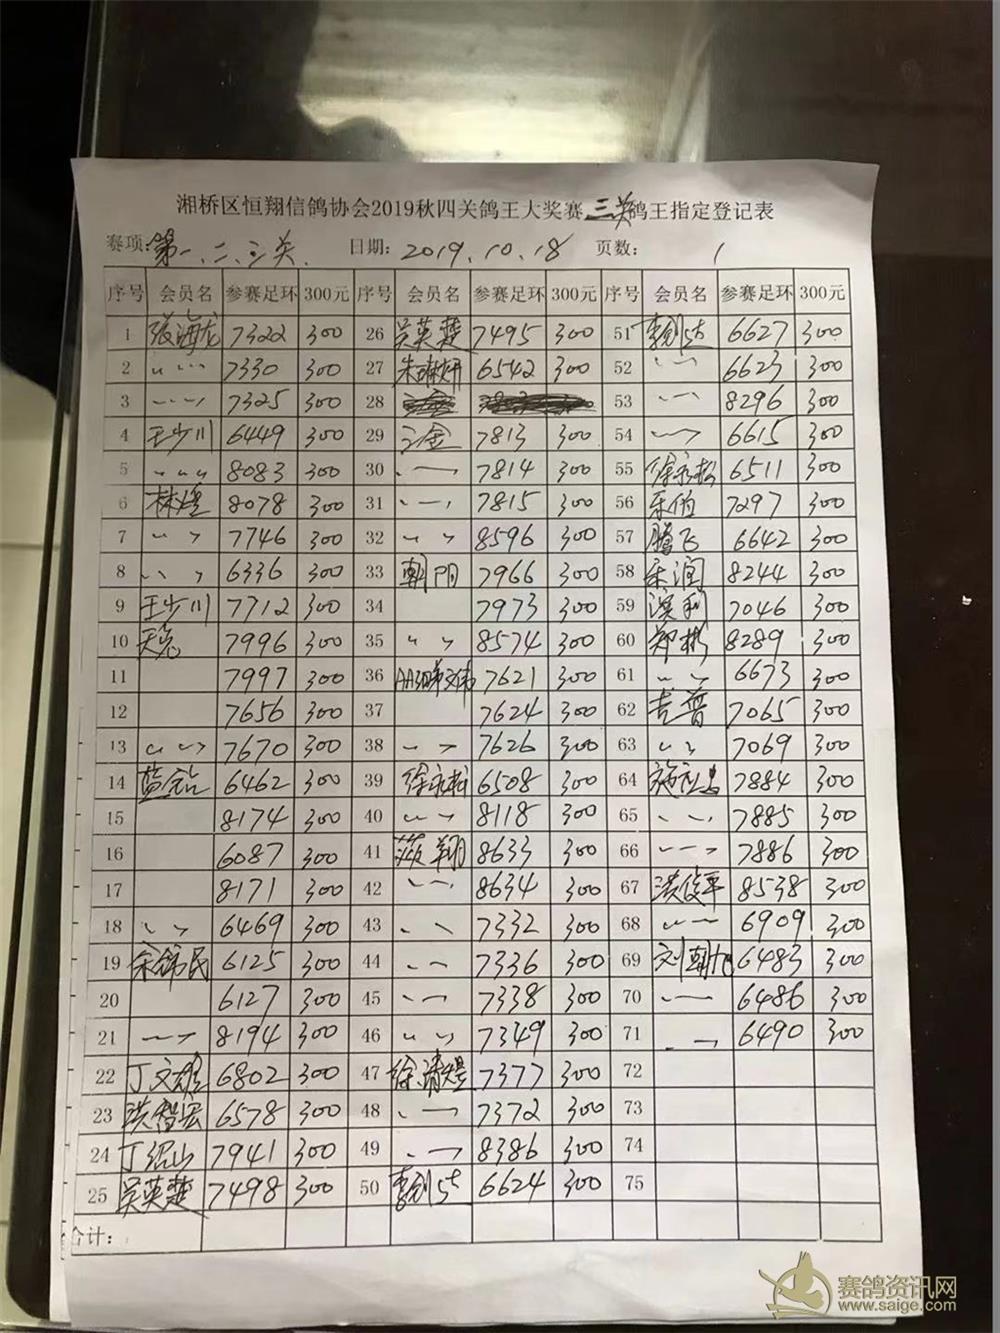 湘桥区恒翔信鸽协会2019秋四关鸽王大奖赛三关鸽王指定登记表
赛项:第一、二、三关. 日期: 2019.10.18 页数: 1
序号 会员名 参赛足环 300元 序号 会员名 参赛足环 300元 序号 会员名 参赛足环 300元
1 张海龙 7322 300 26 吴英楚 7495 300 51 6627 300
2 〃 7330 300 27 朱琳妍 6542 300 52 〃 6623 300
3 〃 7325 300 28 53 〃 8296 300
4 王少川 6449 300 29 金 7813 300 54 〃 6615 300
5 〃 8083 300 30 〃 7814 300 55 徐永松 6511 300
6 林煌 8078 300 31 〃 7815 300 56 7297 300
7 〃 7746 300 32 〃 8596 300 57 腾飞 6642 300
8 〃 6336 300 33 朝阳 7966 300 58 润 8244 300
9 王少川 7712 300 34 7973 300 59 7046 300
10 天 7996 300 35 〃 8574 300 60 郑彬 8289 300
11 7997 300 36 7621 300 61 〃 6673 300
12 7656 300 37 7624 300 62 普 7065 300
13 〃 7670 300 38 〃 7626 300 63 〃 7069 300
14 蓝钻 6462 300 39 徐永松 6508 300 64 7884 300
15 8174 300 40 〃 8118 300 65 〃 7885 300
16 6087 300 41 翔 8633 300 66 〃 7886 300
17 8171 300 42 〃 8634 300 67 洪俊平 8538 300
18 〃 6469 300 43 〃 7332 300 68 〃 6909 300
19 余锦民 6125 300 44 〃 7336 300 69 刘朝旭 6483 300
20 6127 300 45 〃 7338 300 70 〃 6486 300
21 〃 8194 300 46 〃 7349 300 71 〃 6490 300
22 丁文雄 6802 300 47 徐清煜 7377 300 72
23 洪智宏 6578 300 48 〃 7372 300 73
24 丁绍山 7941 300 49 〃 8386 300 74
25 吴英楚 7498 300 50 6624 300 75
合计:
赛鸽资讯网
www.saige.com